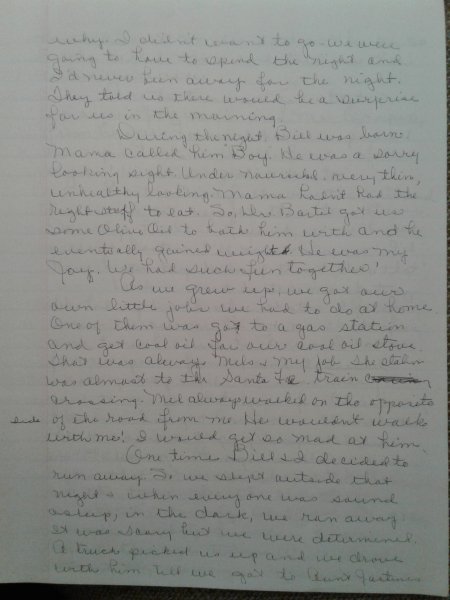 why. I didn't want to go - we were
going to have to spend the night and
I'd never been away for the night.
They told us there would be a surprise
for us in the morning.
During the night, Bill was born.
Mama called him Boy. He was a sorry
looking sight. Under nourished, very thin,
unhealthy looking. Mama hadn't had the
right stuff to eat. So, Mrs. got us
some Olive Oil to bath him with and he
eventually gained weight. He was my
Joy. We had such fun together!
As we grew up, we got our
own little jobs we had to do at home.
One of them was go to a gas station
and get coal oil for our coal oil stove.
That was always Mel's & my job. The station
was almost to the Santa Fe train
crossing. Mel always walked on the opposite
side of the road from me. He wouldn't walk
with me! I would get so mad at him.
One time Bill & I decided to
run away. So we slept outside that
night & when every one was sound
asleep, in the dark, we ran away.
It was scary but we were determined.
A truck picked us up and we drove
with him till we got to Aunt